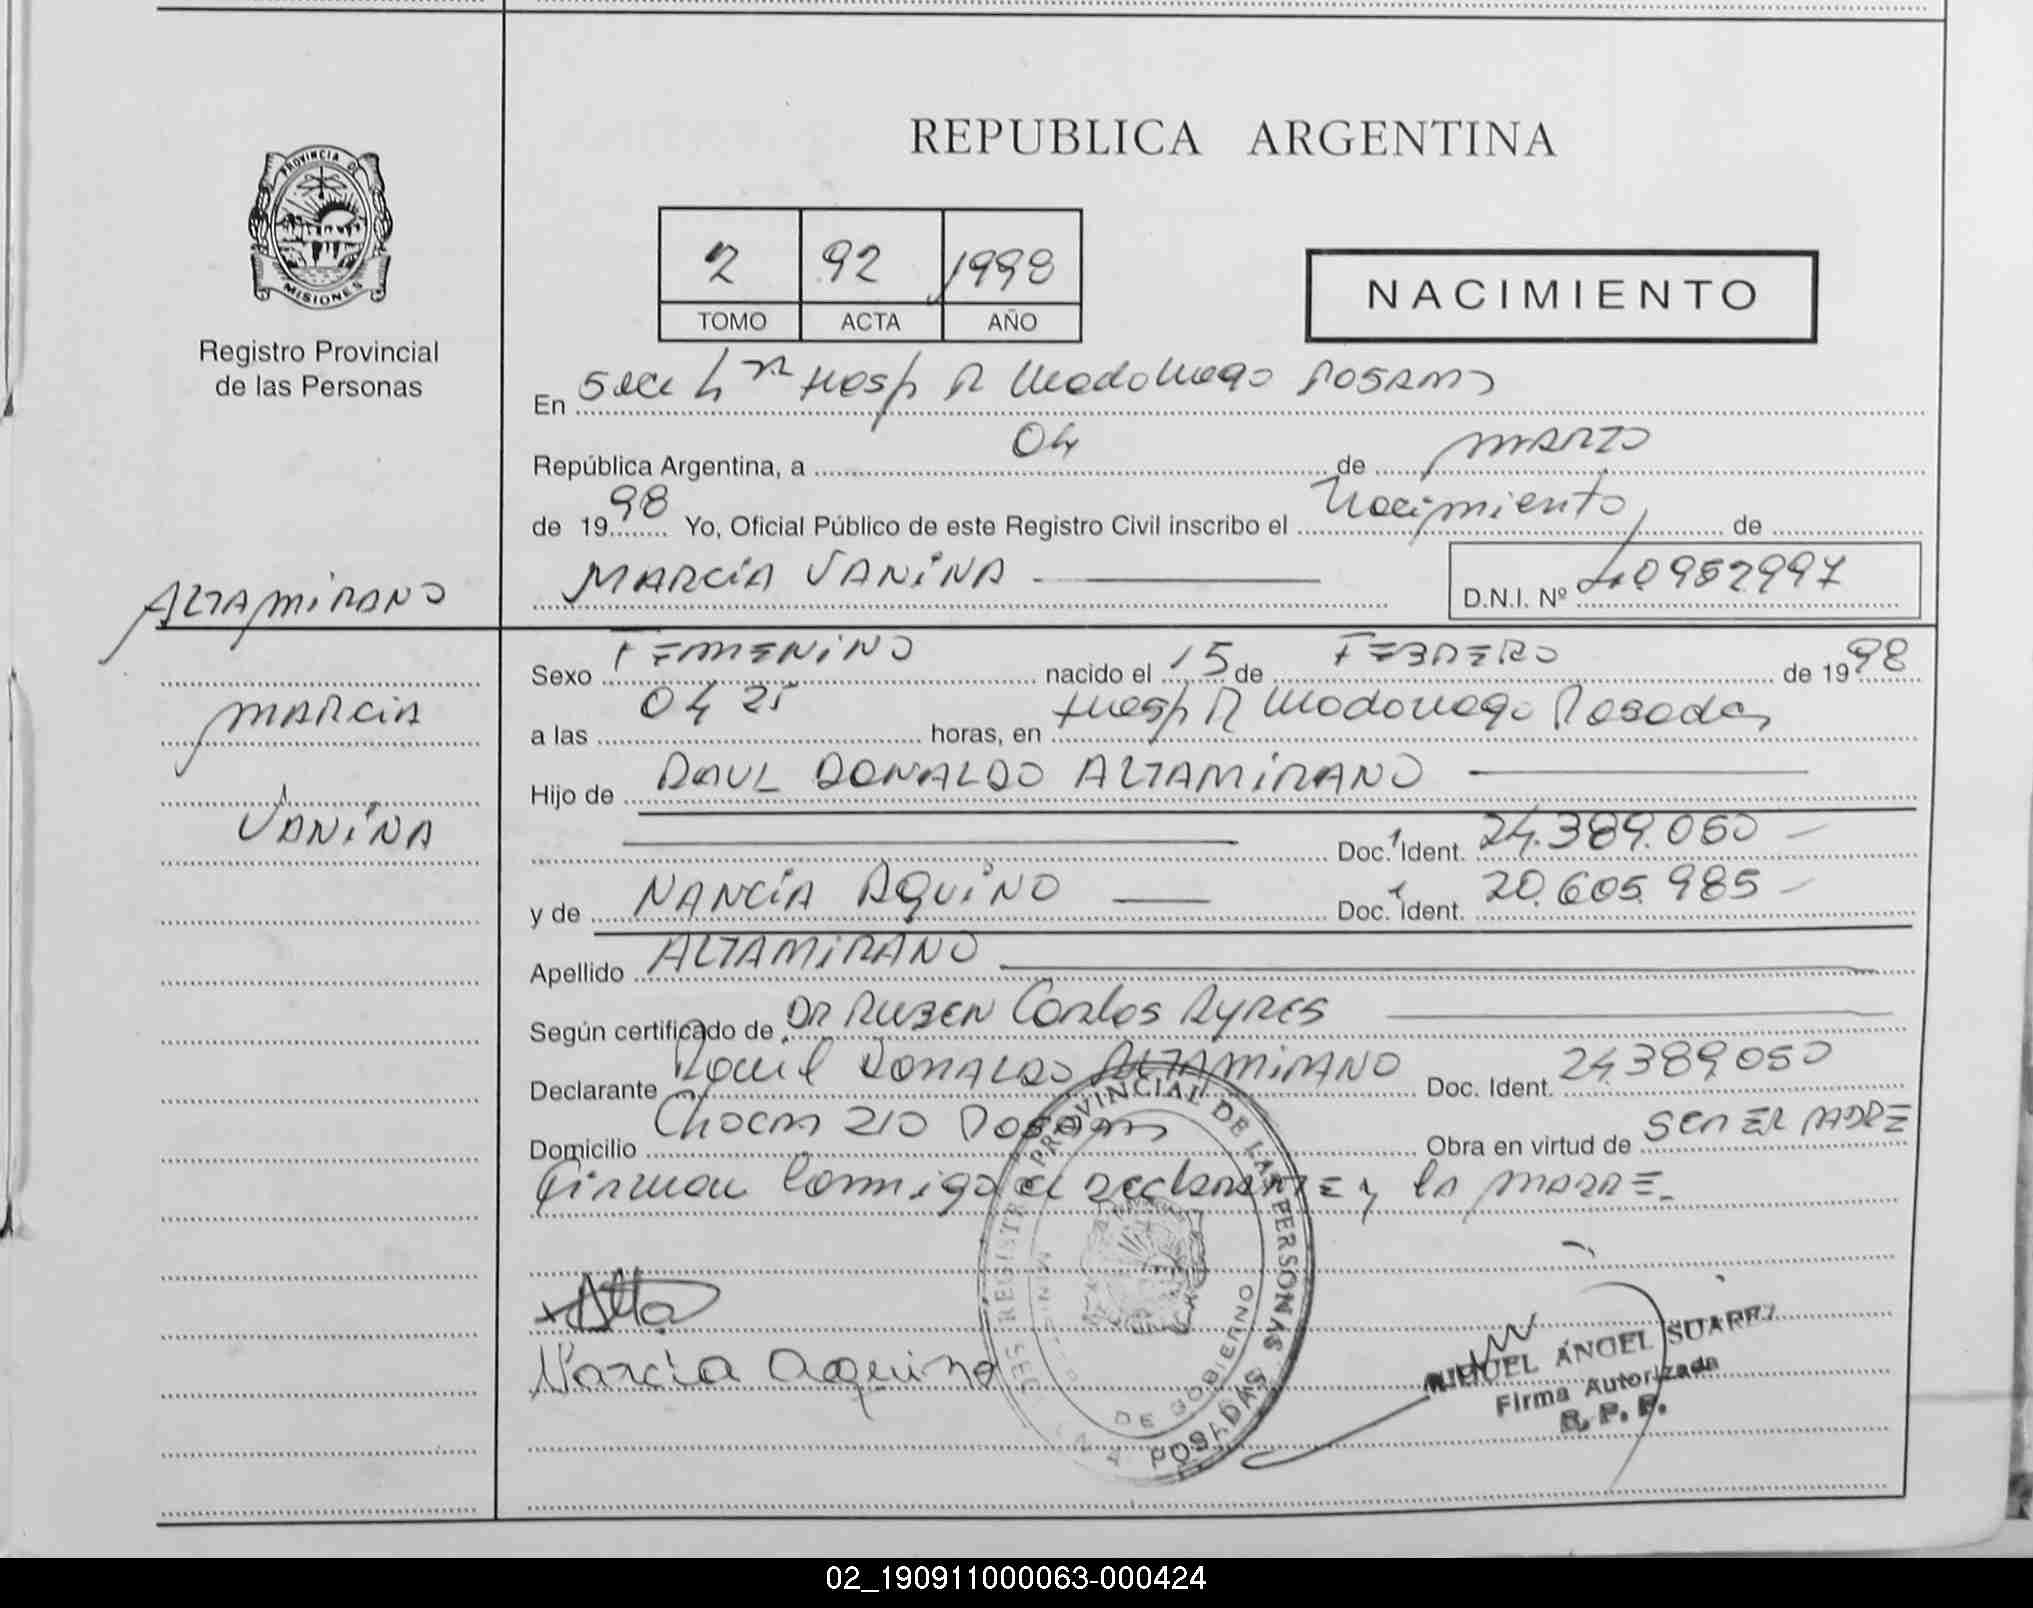 REPUBLICA ARGENTINA
PROVINCIA DE
MISIONES
Registro Provincial
de las Personas
2 92 1998
TOMO ACTA AÑO
NACIMIENTO
En Secc 4ª Hosp R Madariaga Posadas
República Argentina, a 04 de MARZO
de 1998 Yo, Oficial Público de este Registro Civil inscribo el Nacimiento de
MARCIA VANINA D.N.I. Nº 40952997
ALTAMIRANO
MARCIA
VANINA
Sexo FEMENINO nacido el 15 de FEBRERO de 1998
a las 04 25 horas, en Hosp R Madariaga Posadas
Hijo de RAUL RONALDO ALTAMIRANO
Doc. Ident. 24.389.050
y de NANCIA AQUINO Doc. Ident. 20.605.985
Apellido ALTAMIRANO
Según certificado de DR RUBEN Carlos AYRES
Declarante RAUL RONALDO ALTAMIRANO Doc. Ident. 24.389.050
Domicilio Chaco 210 Posadas Obra en virtud de SER EL PADRE
Firman conmigo el declarante y la MADRE.
REGISTRO PROVINCIAL DE LAS PERSONAS
DE GOBIERNO
POSADAS
Narcia Aquino
MIGUEL ÁNGEL SUAREZ
Firma Autorizada
R. P. P.
02_190911000063-000424